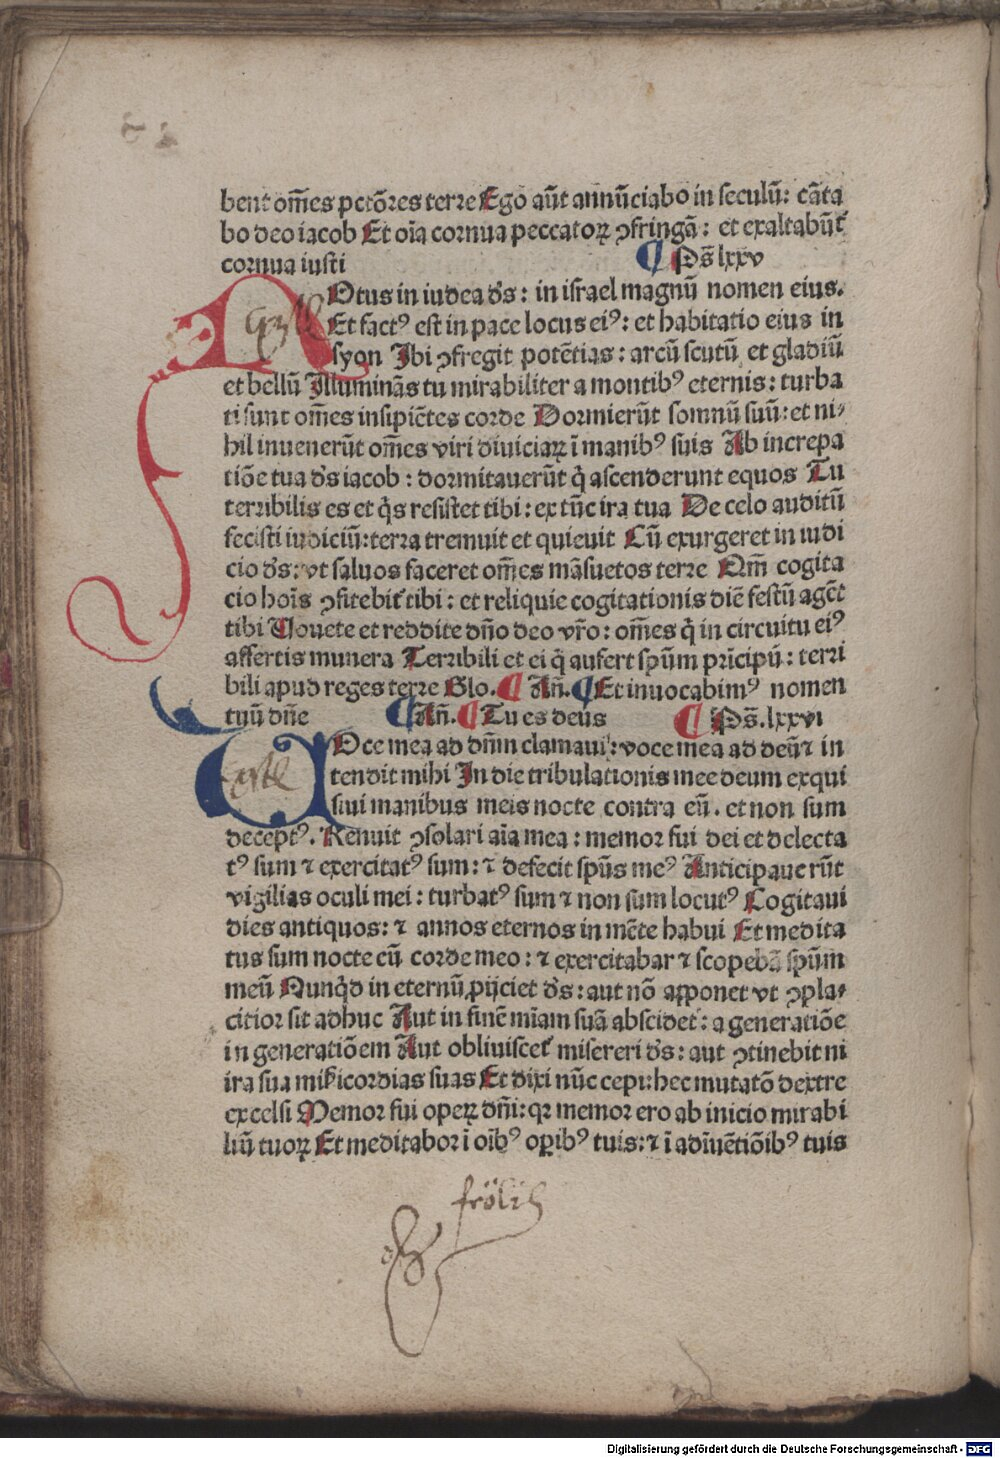 bent om̄es pctōres terre Ego aūt annūciabo in seculū: cāta
bo deo iacob Et oīa cornua peccatoꝝ ꝯfringā: et exaltabūt̄
cornua iusti ¶ Ps̄ lxxv
NOtus in iudea dꝰs: in israel magnū nomen eius.
Et factꝰ est in pace locus eiꝰ: et habitatio eius in
syon Ibi ꝯfregit potētias: arcū scutū et gladiū
et bellū Illuminās tu mirabiliter a montibꝰ eternis: turba
ti sunt om̄es insipiētes corde Dormierūt somnū suū: et ni⸗
hil inuenerūt om̄es viri diuiciaꝝ ī manibꝰ suis Ab increpa
tiōe tua dꝰs iacob: dormitauerūt q̄ ascenderunt equos Tu
terribilis es et q̄s resistet tibi: ex tūc ira tua De celo auditū
fecisti iudiciū: terra tremuit et quieuit Cū exurgeret in iudi
cio dꝰs: vt saluos faceret om̄es māsuetos terre Qm̄ cogita
cio hoīs ꝯfitebit̄ tibi: et reliquie cogitationis diē festū agēt
tibi Uouete et reddite dn̄o deo vr̄o: om̄es q̄ in circuitu eiꝰ
affertis munera Terribili et ei q̄ aufert spūm prīcipū: terri
bili apud reges terre Glo. ¶ An̄. ¶ Et inuocabimꝰ nomen
tuū dn̄e ¶ An̄. ¶ Tu es deus ¶ Ps̄. lxxvi
UOce mea ad dn̄m clamaui: voce mea ad deū ⁊ in
tendit mihi In die tribulationis mee deum exqui
siui manibus meis nocte contra eū. et non sum
deceptꝰ. Renuit ꝯsolari aīa mea: memor fui dei et delecta
tꝰ sum ⁊ exercitatꝰ sum: ⁊ defecit spūs meꝰ Anticipauerūt
vigilias oculi mei: turbatꝰ sum ⁊ non sum locutꝰ Cogitaui
dies antiquos: ⁊ annos eternos in mēte habui Et medita
tus sum nocte cū corde meo: ⁊ exercitabar ⁊ scopebā spūm
meū Nunq̄d in eternū ꝓijciet dꝰs: aut nō apponet vt ꝯpla⸗
citior sit adhuc Aut in finē mīam suā abscidet: a generatiōe
in generatiōem Aut obliuiscet̄ misereri dꝰs: aut ꝯtinebit ni
ira sua mīcordias suas Et dixi nūc cepi: hec mutatō dextre
excelsi Memor fui opeꝝ dn̄i: qꝛ memor ero ab inicio mirabi
liū tuoꝝ Et meditabor ī oībꝰ opībꝰ tuis: ⁊ ī adīuētiōibꝰ tuis
frölich
Digitalisierung gefördert durch die Deutsche Forschungsgemeinschaft - DFG